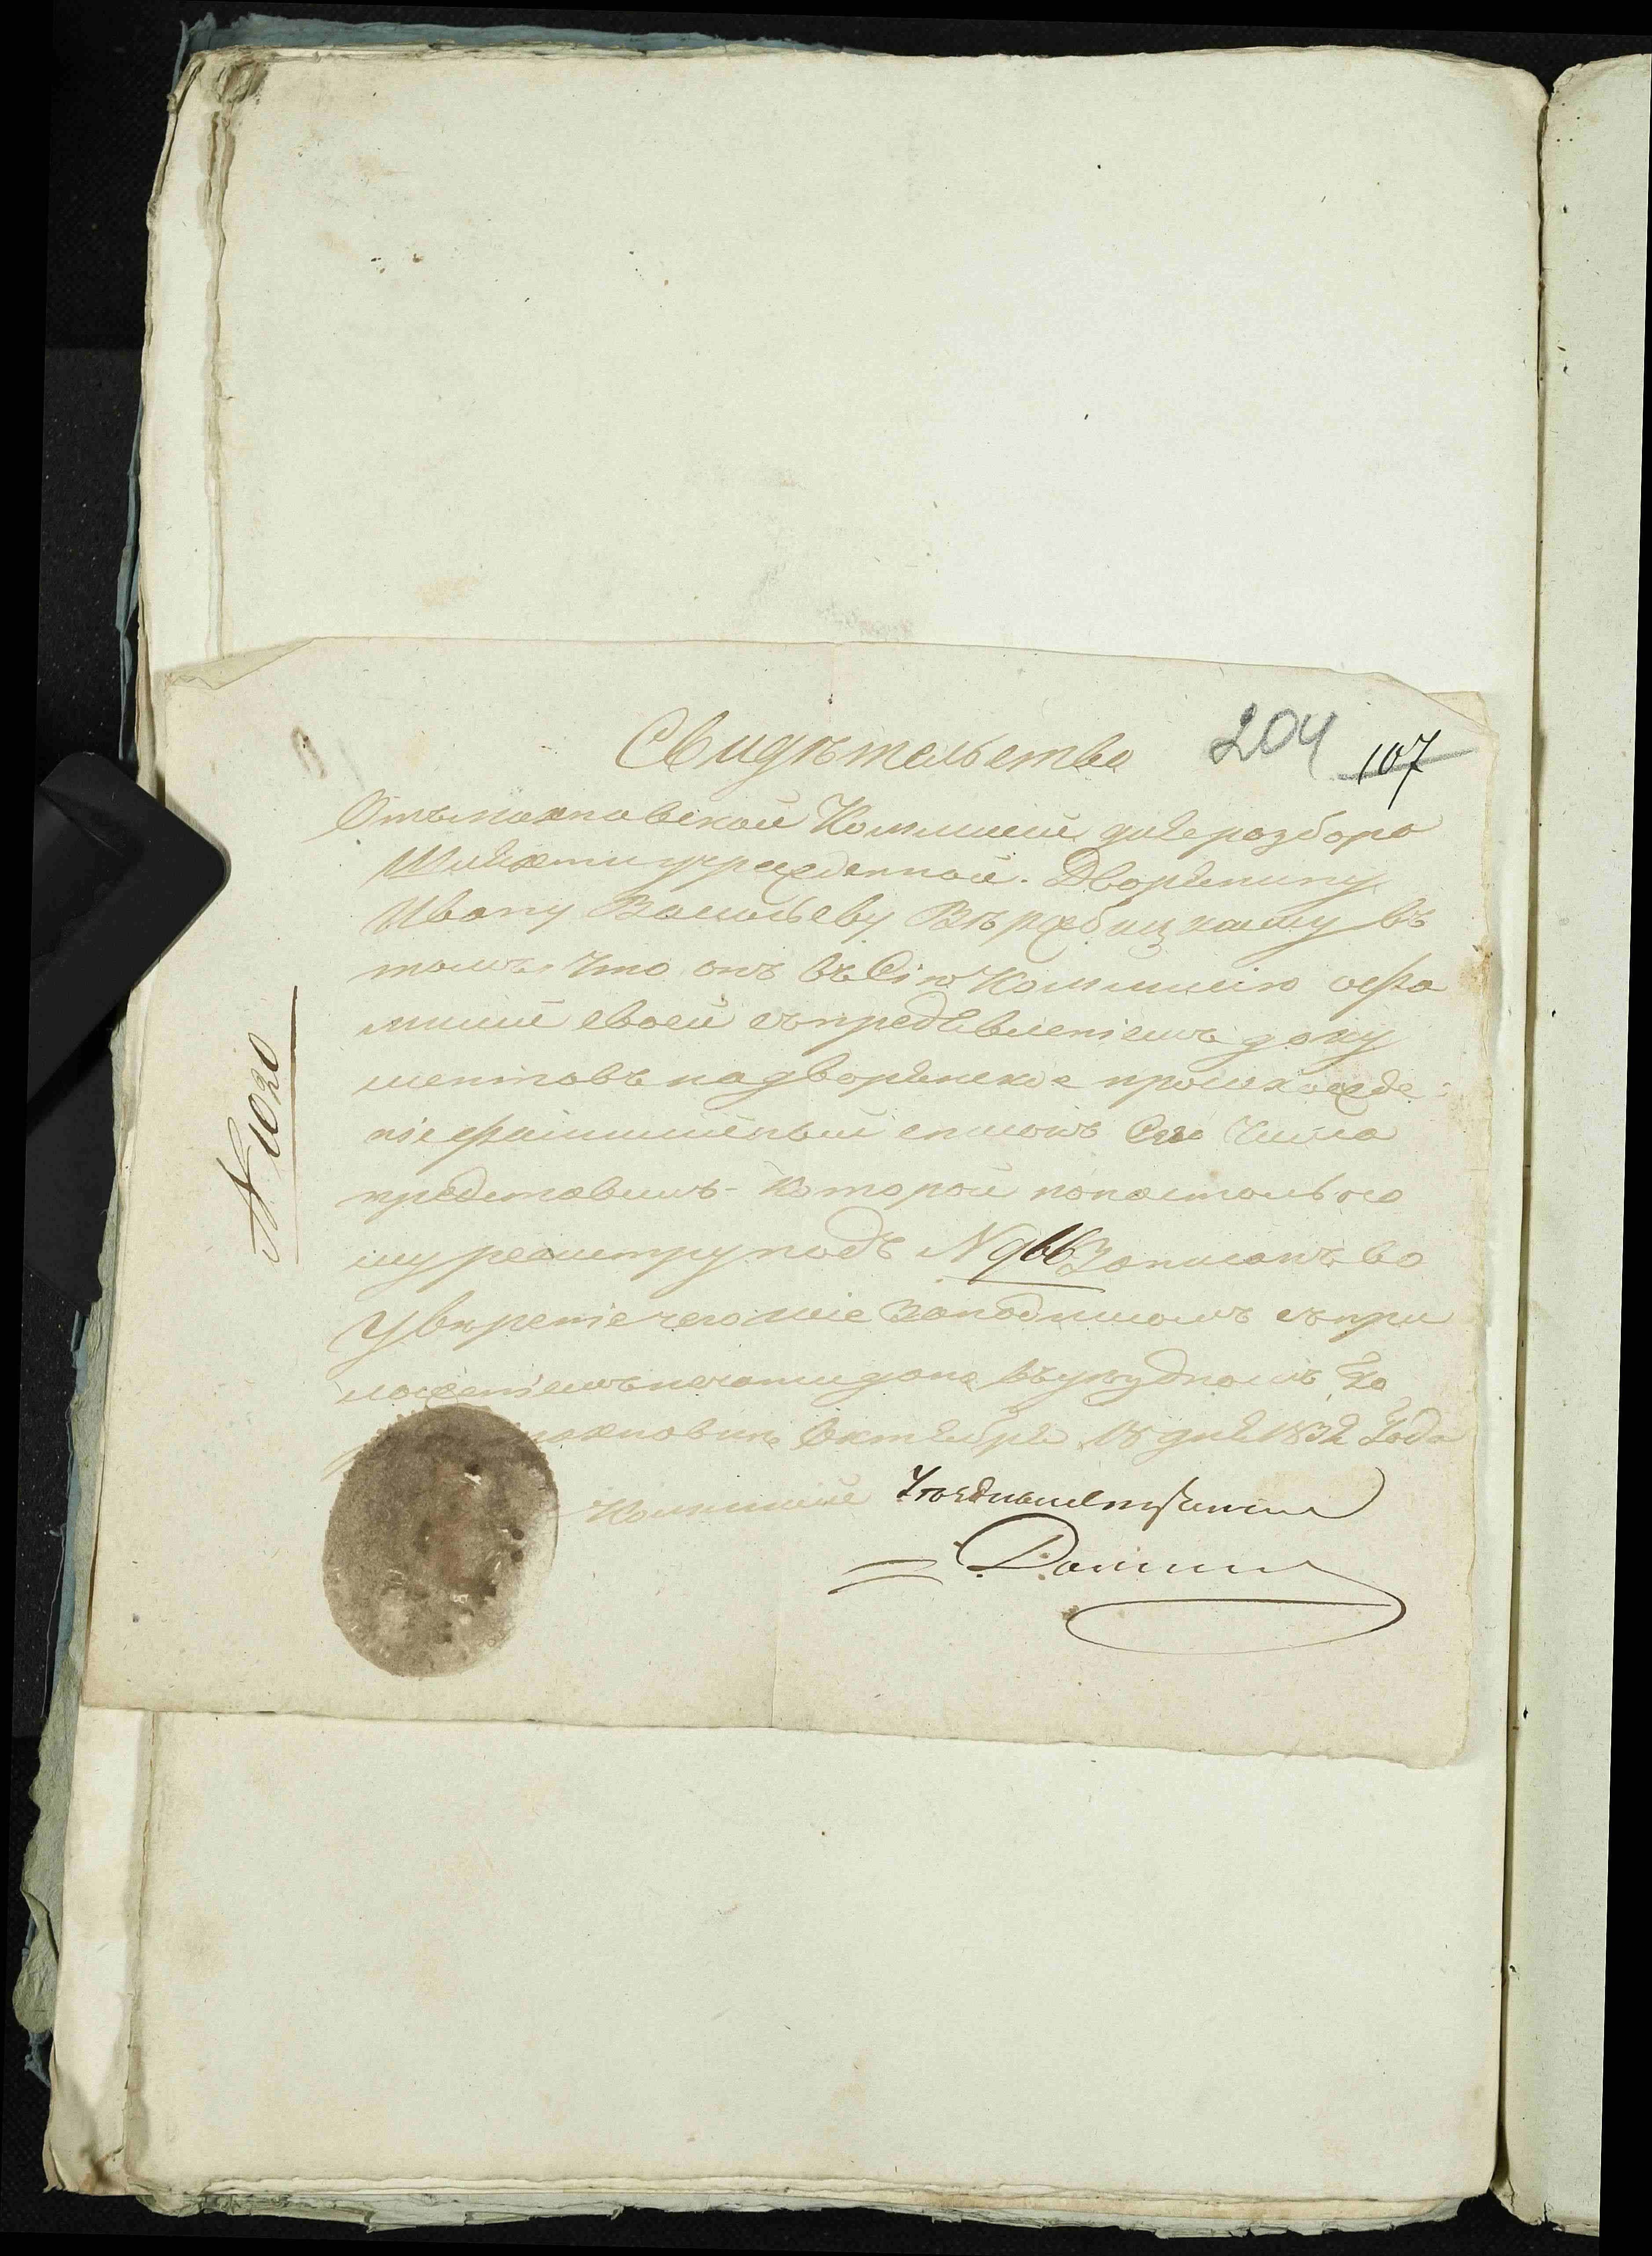 Свидѣтельство
204
107
Отъ махновской Коммисіи для разбора
Шляхти учрежденной. Дворянину
Ивану Васильеву Вѣржбицкому въ
томъ, Что онъ въ Сію Коммисію о фа
миліи своей съ предъявленіемъ доку
ментовъ на дворянское происхожде-
ніе фамилійный списокъ Сего Числа
представилъ - Которой по настольно
му реестру подъ N 966 Записанъ во
Увѣреніе чего сіе За подписомъ съ при
ложеніемъ печати дано въ уѣздномъ Го
махновкѣ Октября 18 дня 1832 Года
Коммисіи
N 1020